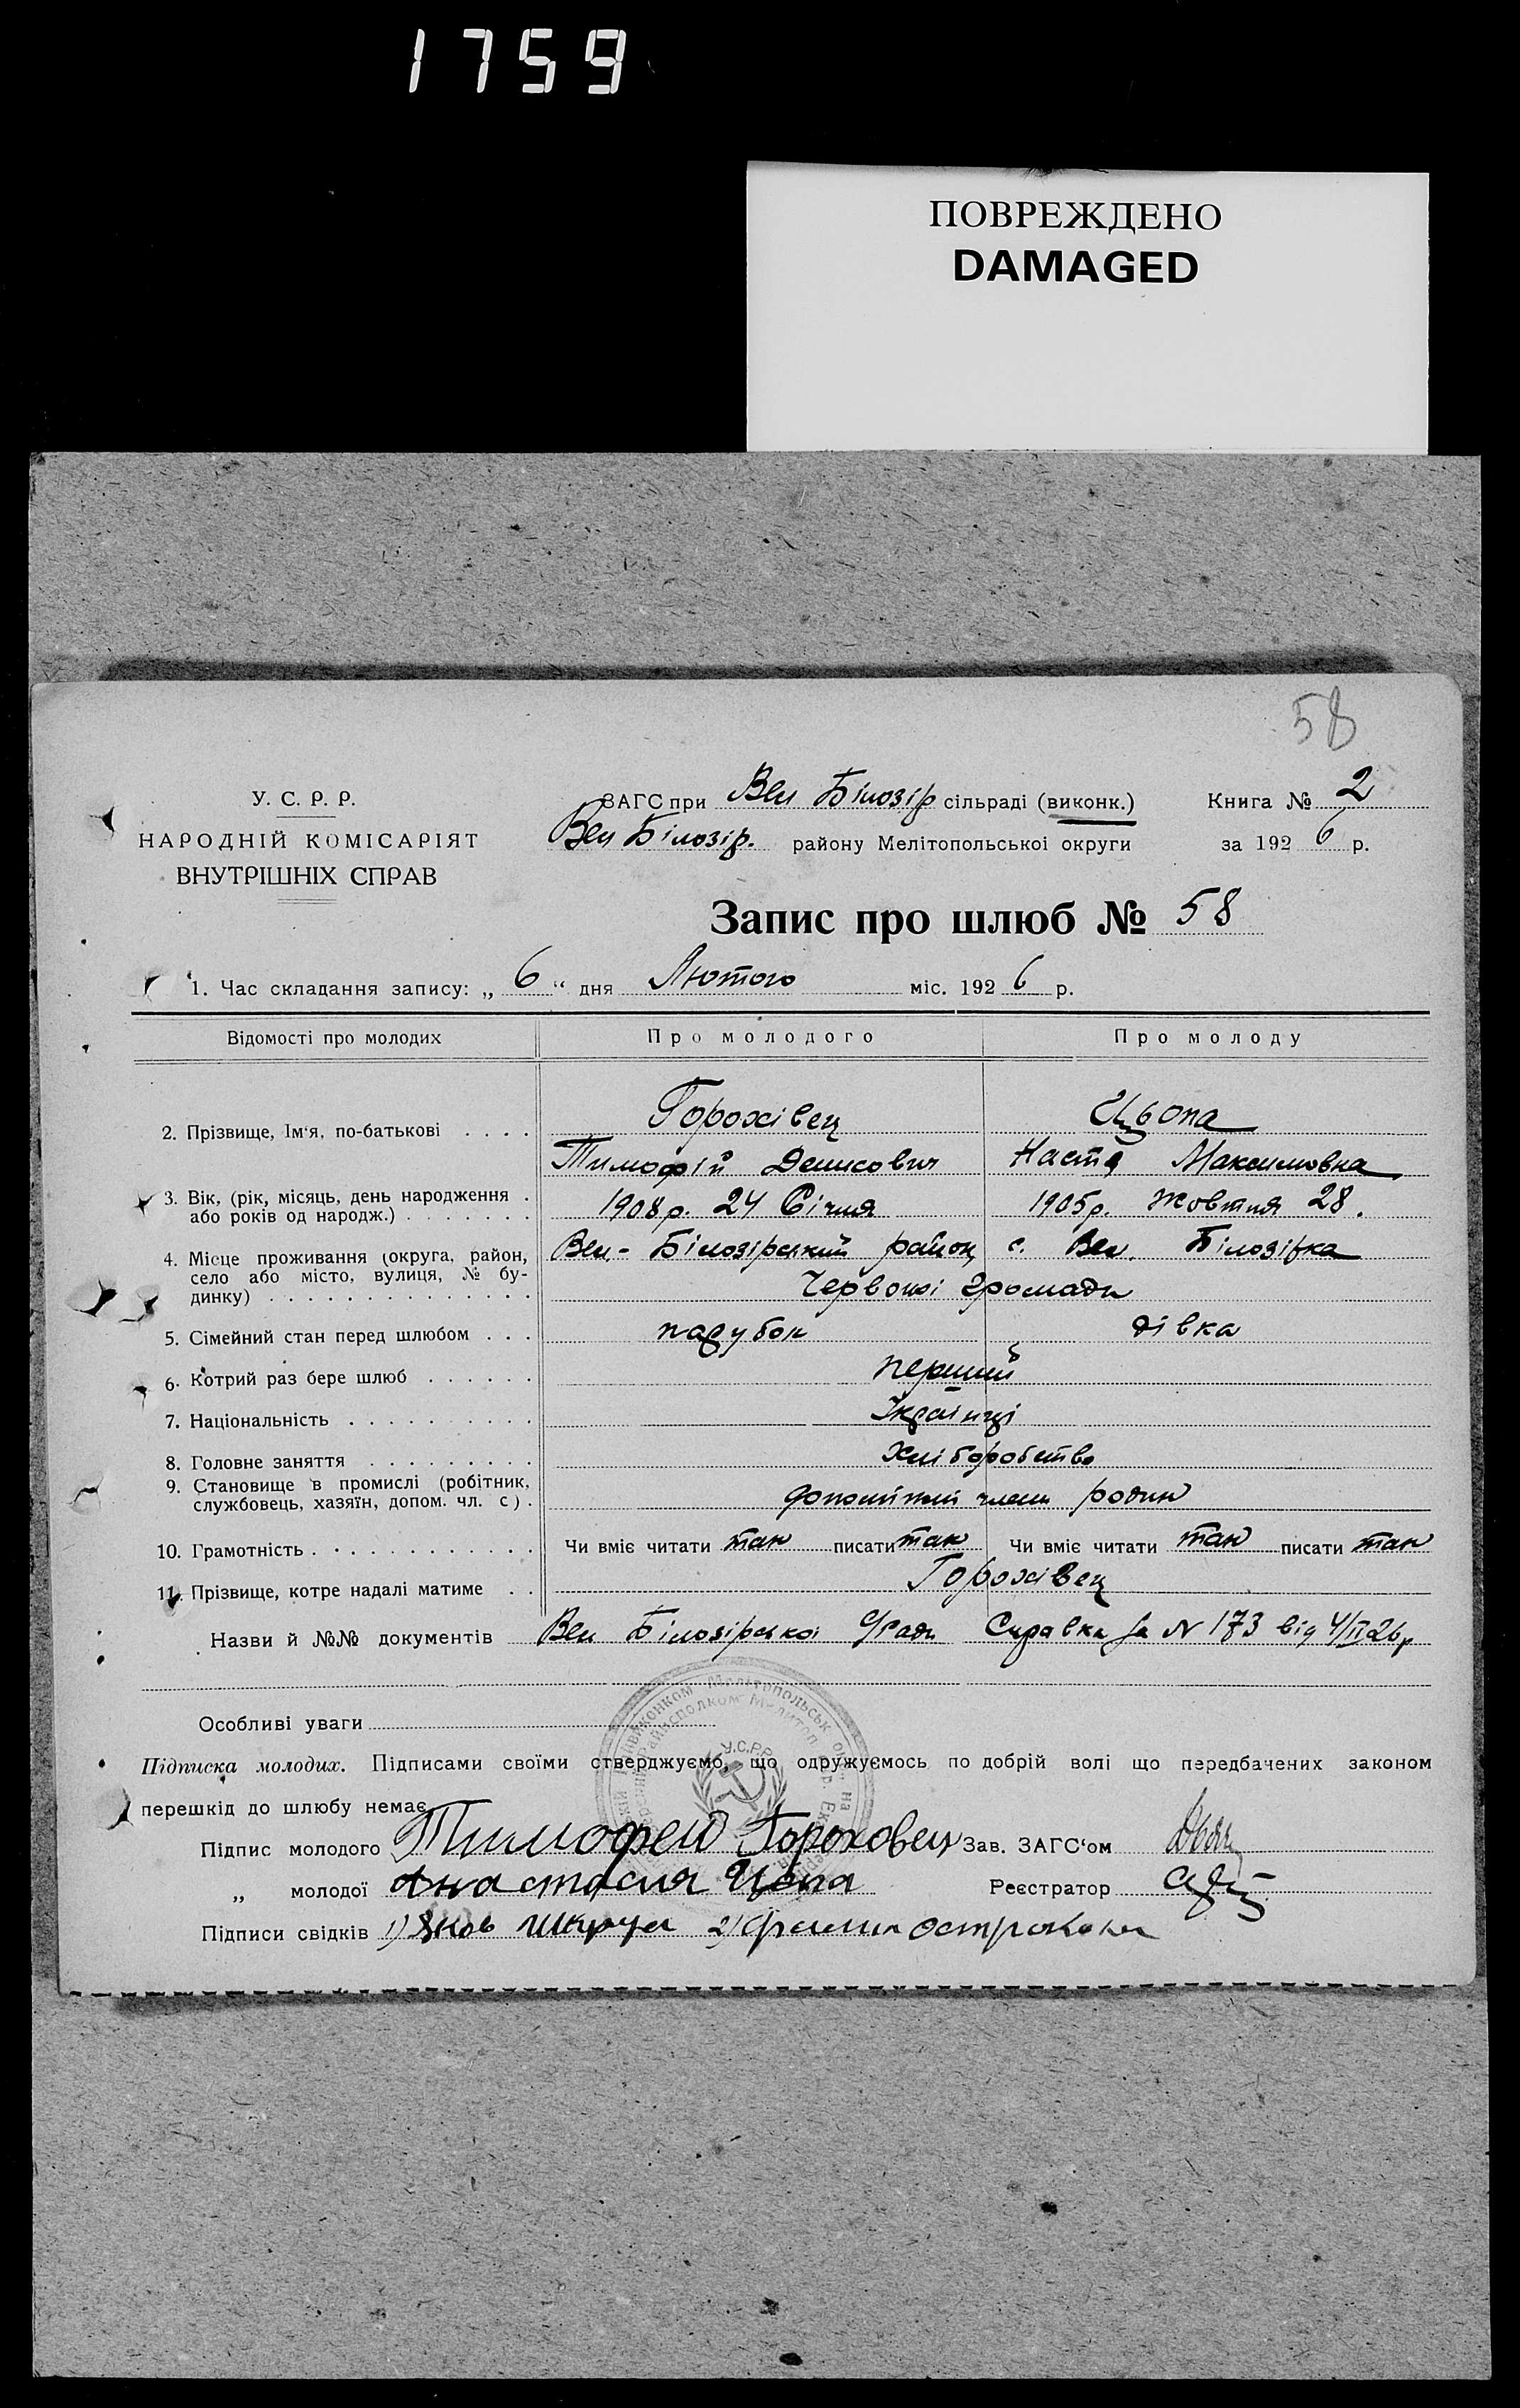 1759
ПОВРЕЖДЕНО
DAMAGED
58
У. С. Р. Р.
НАРОДНІЙ КОМІСАРІЯТ
ВНУТРІШНІХ СПРАВ
ЗАГС при Вел Білозір сільраді (виконк.) Книга № 2
Вел Білозір. району Мелітопольської округи за 1926 р.
Запис про шлюб № 58
1. Час складання запису: „ 6 “ дня Лютого міс. 1926 р.
Відомості про молодих Про молодого Про молоду
2. Прізвище, Ім‘я, по-батькові . . . . Горохівец Цьопа
Тимофій Денисович Настя Максимовна
3. Вік, (рік, місяць, день народження .
або років од народж.) . . . . . . . 1908 р. 24 Січня 1905 р. Жовтня 28.
4. Місце проживання (округа, район,
село або місто, вулиця, № бу-
динку) . . . . . . . . . . . . . .
Вел - Білозірський район с. Вел. Білозірка
Червоної громади
5. Сімейний стан перед шлюбом . . . парубок дівка
6. Котрий раз бере шлюб . . . . . . перший
7. Національність . . . . . . . . . . Українці
8. Головне заняття . . . . . . . . . Хліборобство
9. Становище в промислі (робітник,
службовець, хазяїн, допом. чл. с) . допоміжний члени родин
10. Грамотність . . . . . . . . . . . . Чи вміє читати так писати так Чи вміє читати так писати так
11. Прізвище, котре надалі матиме . . Горохівец
Назви й №№ документів Вел Білозірської С/ради Справка за N 173 від 4/II 26 р
Особливі уваги
У.С.Р.Р.
Підписка молодих. Підписами своїми стверджуємо, що одружуємось по добрій волі що передбачених законом
перешкід до шлюбу немає.
Підпис молодого Тимофей Гороховец Зав. ЗАГС‘ом
„ молодої Анастасия Цопа Реєстратор
Підписи свідків 1) Яков 2)